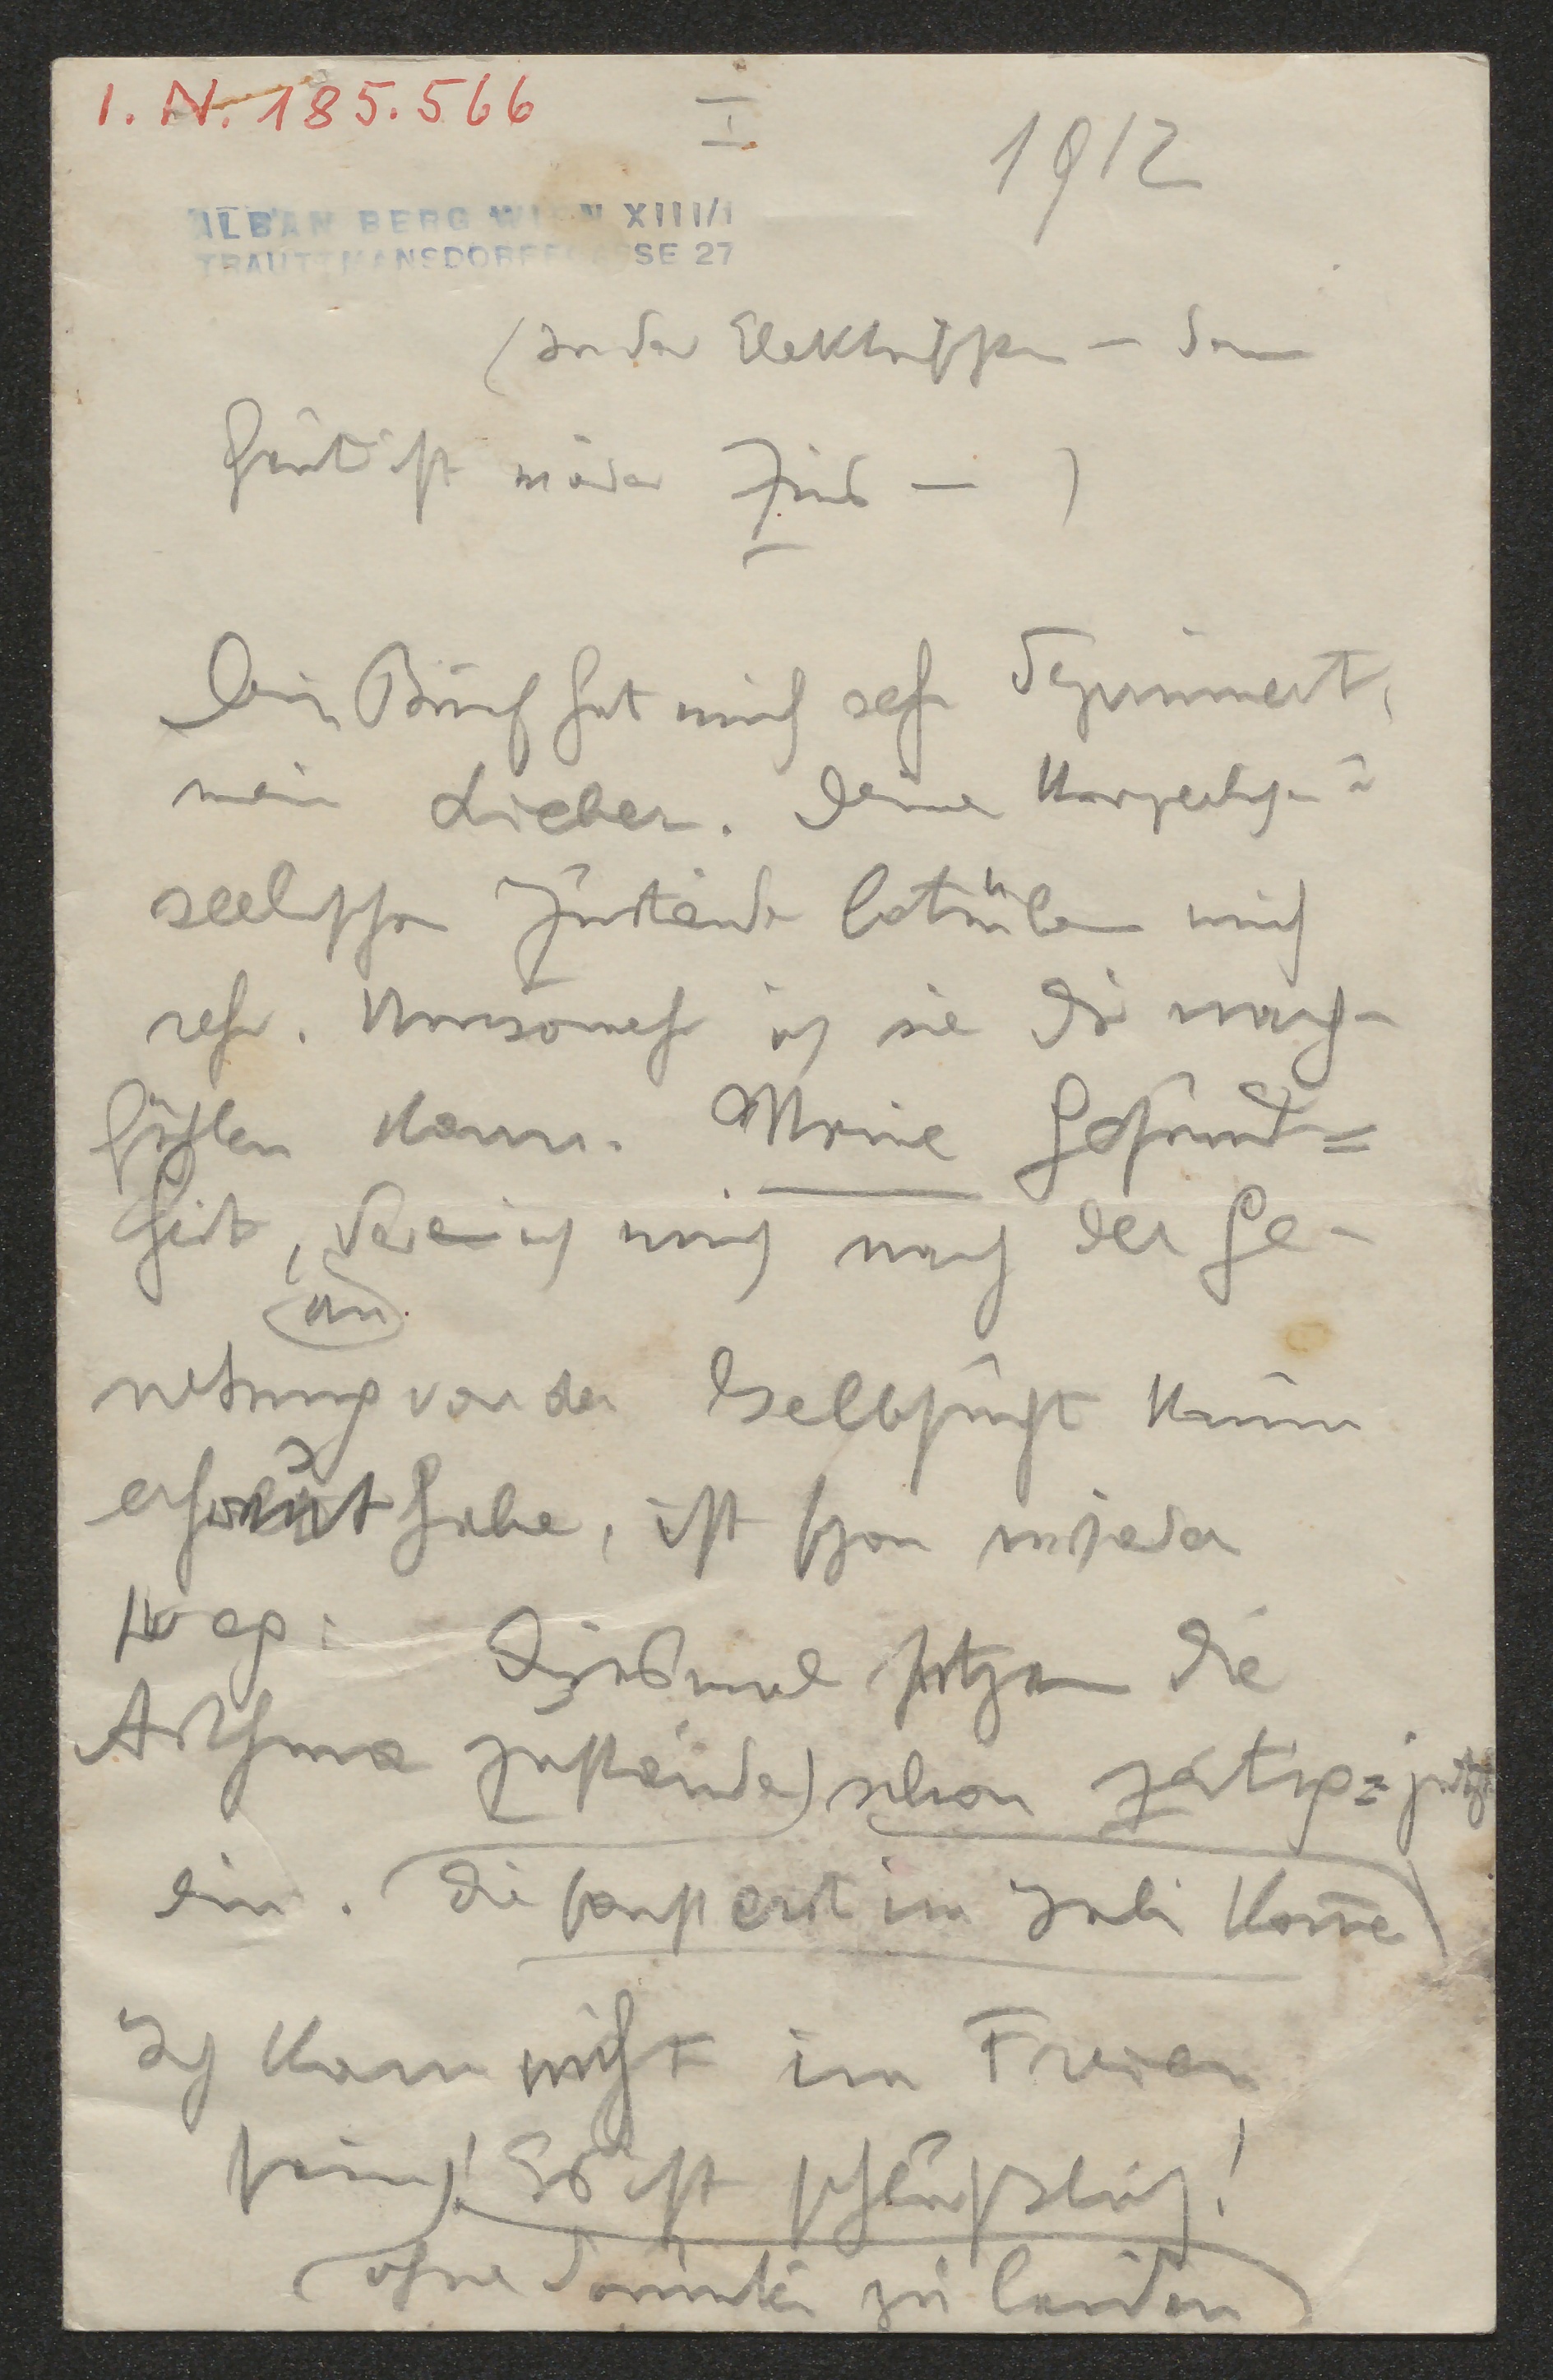 I. N. 185.566
I
1912
ALBAN BERG WIEN XIII/1
TRAUTTMANSDORFFGASSE 27
(In der Elektrischen — denn
heut ist wieder Jius — )
Dein Brief hat mich sehr deprimiert,
mein Lieber. Deine körperlichen u
seelischen Zustände betrüben mich
sehr. Umsomehr ich sie Dir nach-
fühlen kann. Meine Gesund=
heit, deren ich mich nach der Ge-
an
nesung von der Gelbsucht kaum
erfreut habe, ist schon wieder
weg: Diesmal setzen die
Asthma zustände) schon zeitig = jetzt
ein. (die sonst erst im Juli komme)
Ich kann nicht im Freien
sein)! Es ist schäuslich!
(ohne darunter zu leiden)